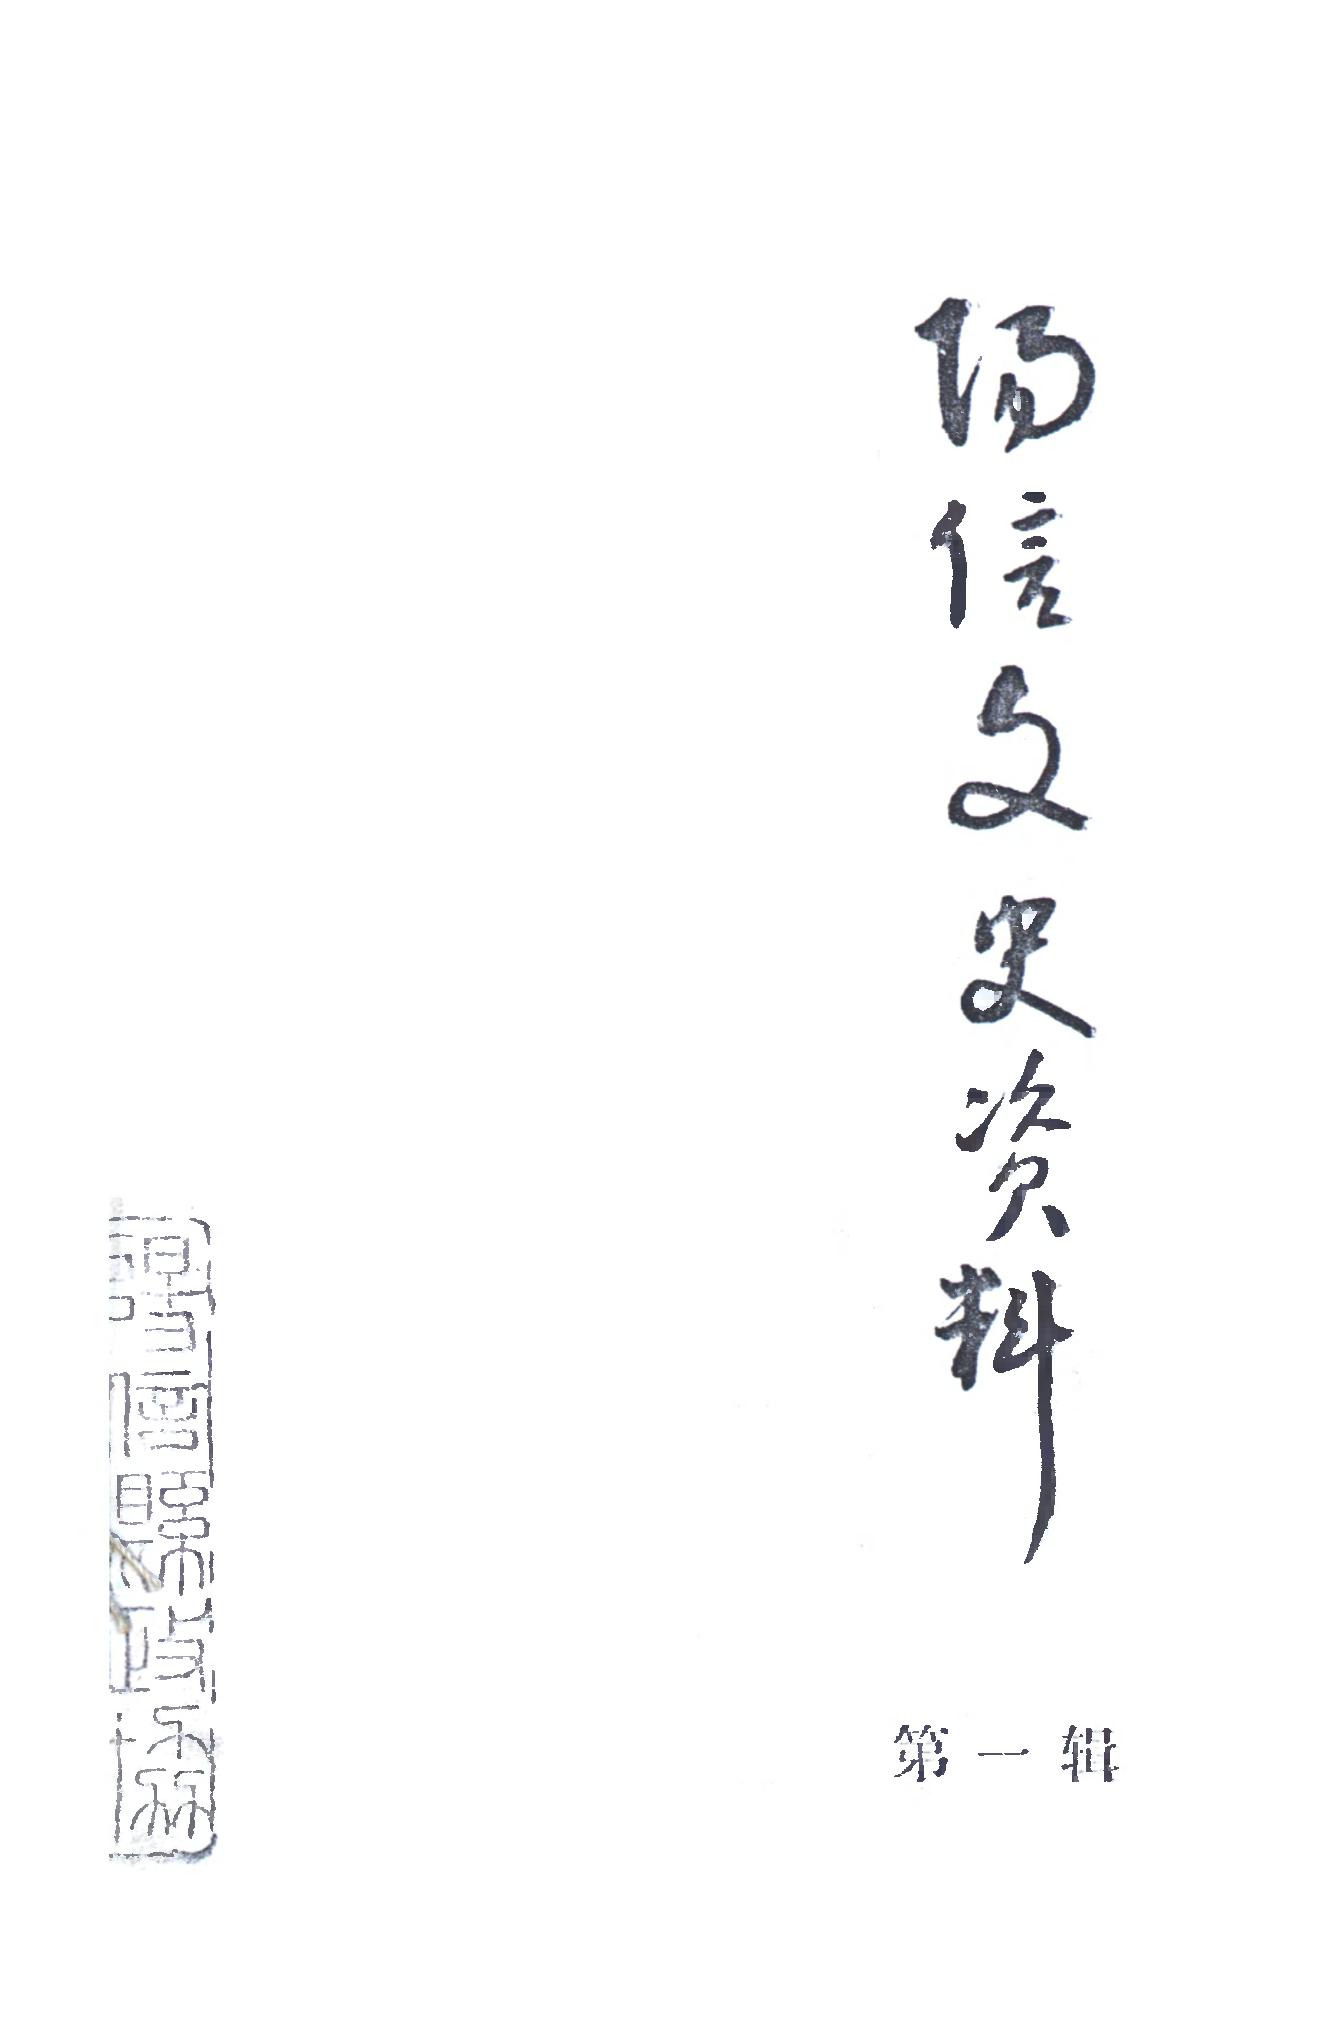 阳信文史资料
第一辑